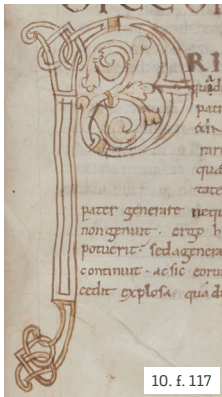 P RI
quid
pat
rar
qua
tate
pater generare nequ
non genuit · ergo h
potuerit · sed agenera
continuit · ac sic eoru
cedit explosa qua d
10. f. 117